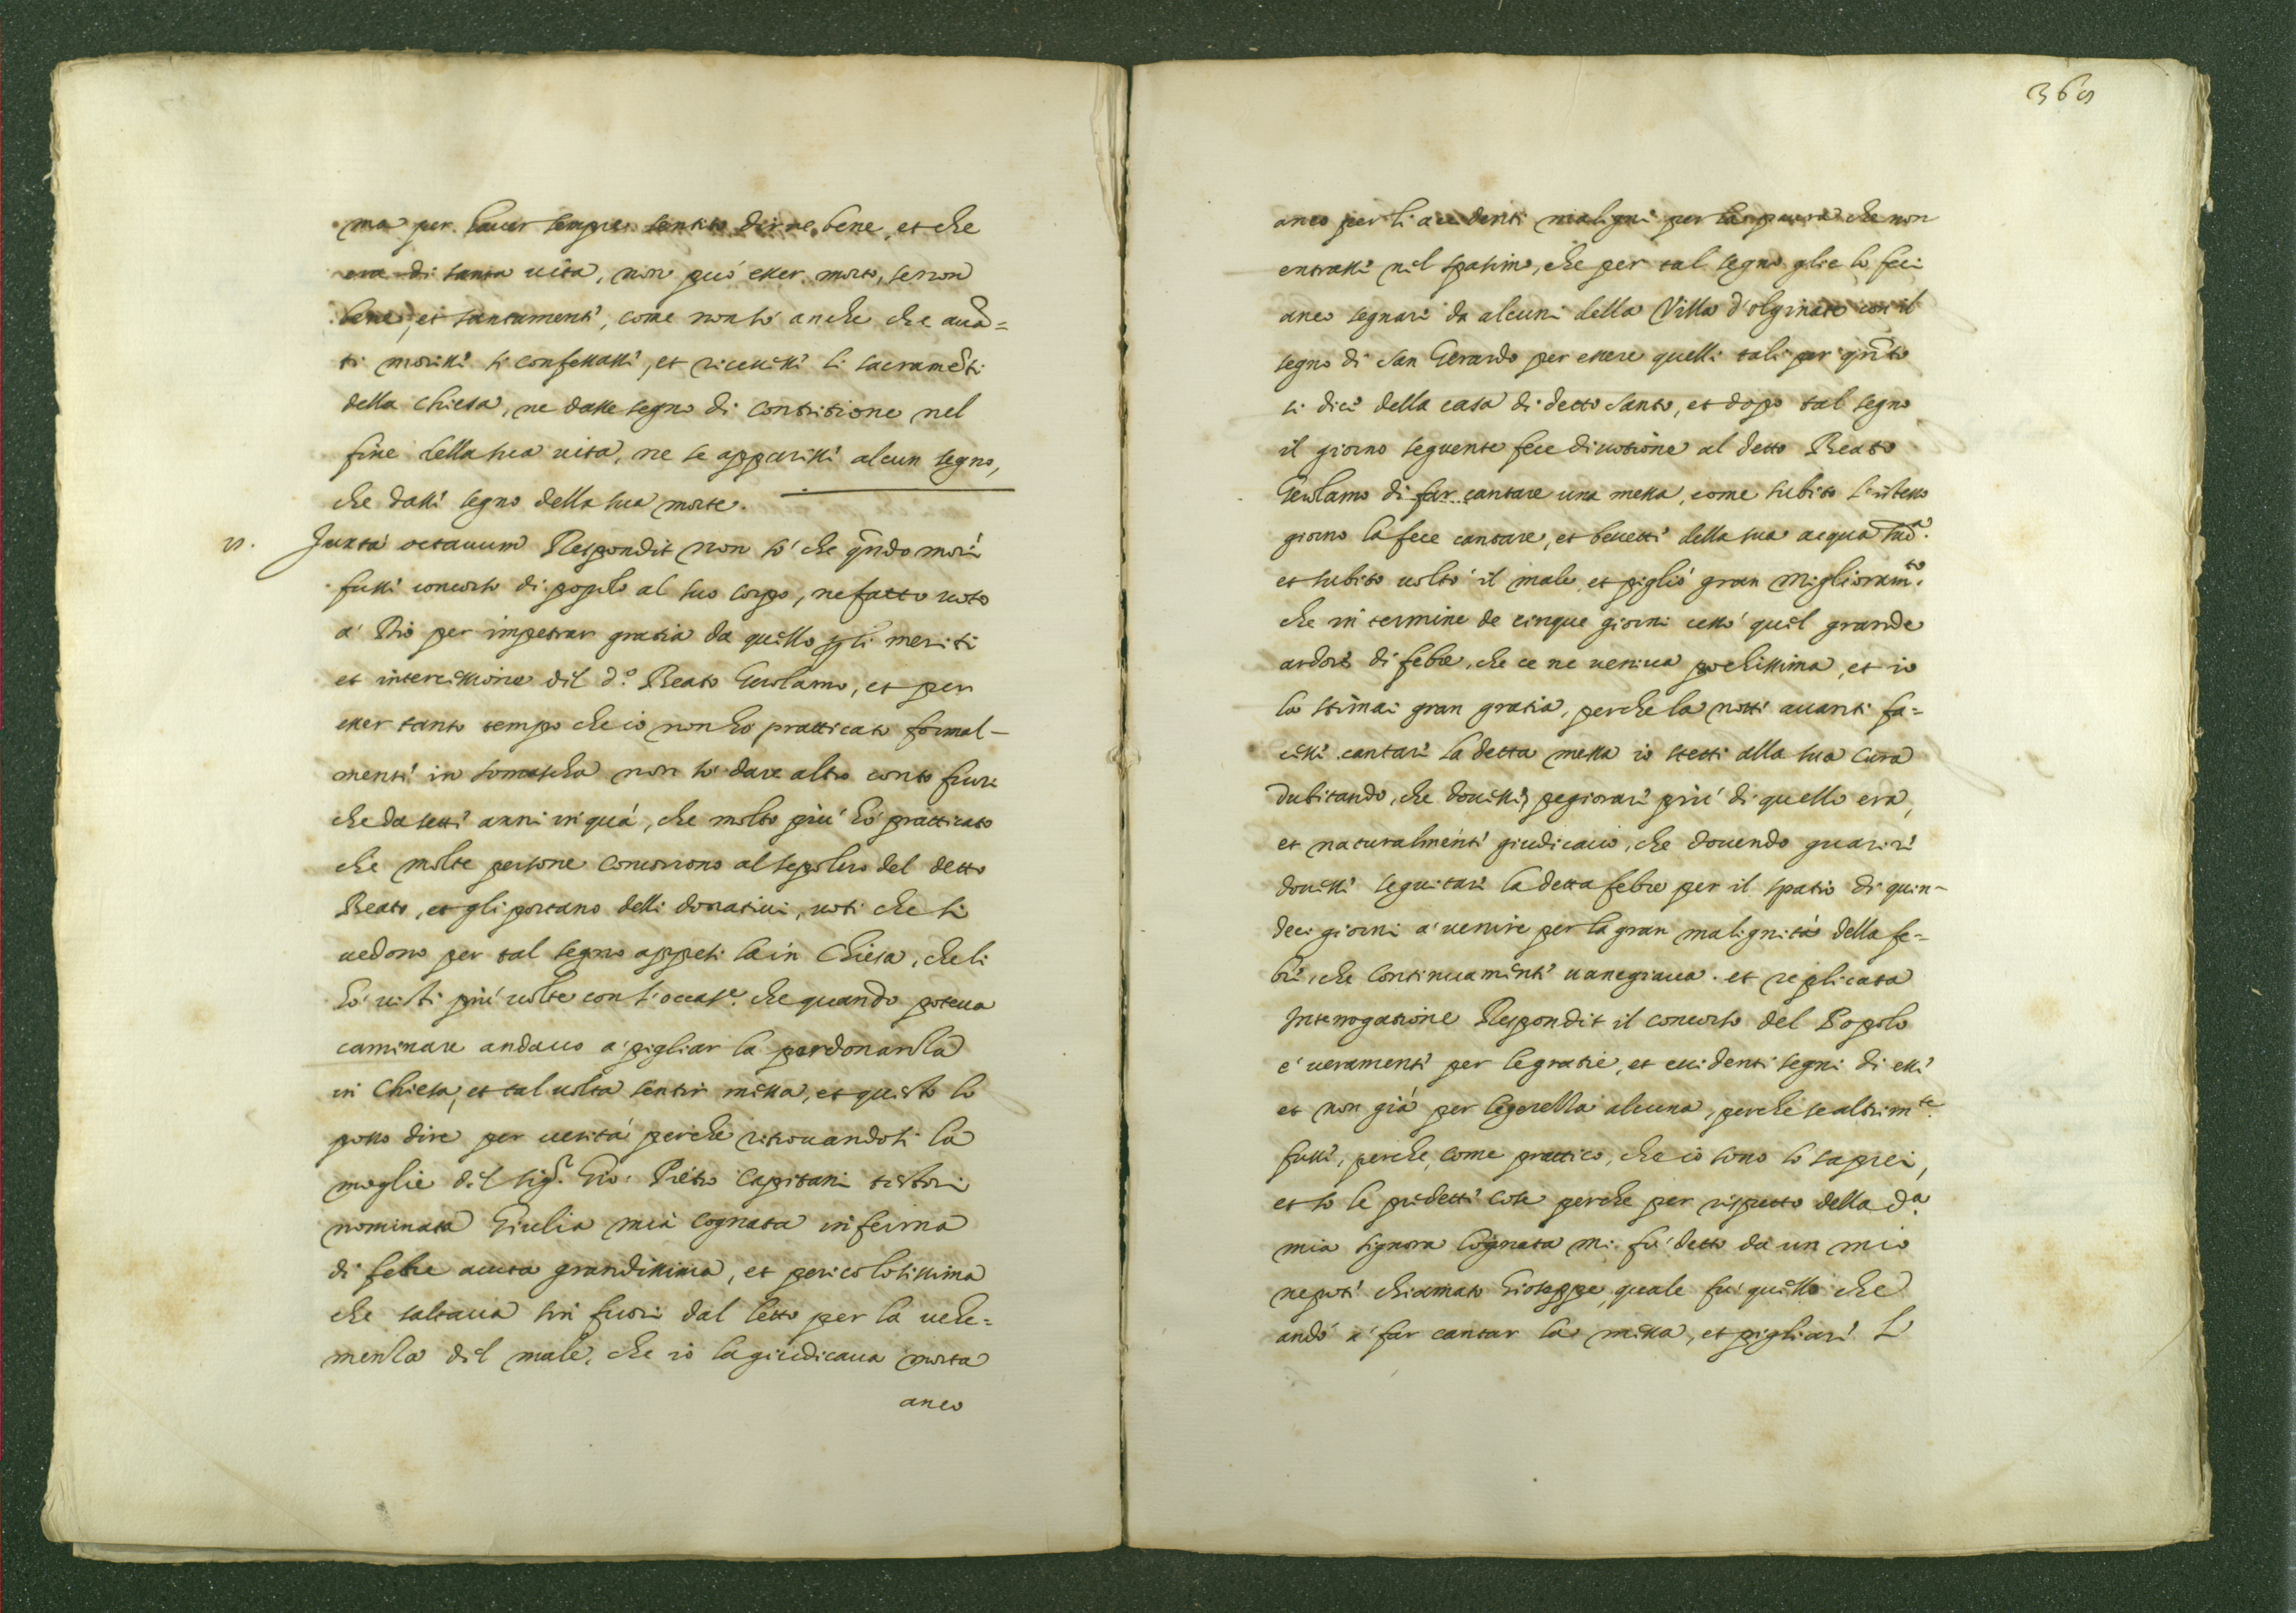 ma per hauer sempre sentito dirne bene, et che
era di santa uita, non può esser morto, se non
bene, et santamente, come non sò anche che auã=
ti morisse si confessasse, et riceuesse li sacramẽti
della Chiesa, ne dasse segno di contritione nel
fine della sua uita, ne se apparisse alcun segno,
che dasse segno della sua morte.
Juxta octauum Respondit non sò che qñdo morì
fusse concorso di popolo al suo corpo, ne fatto uoto
a Dio per impetrar gratia da quello per li meriti
et intercessione dil d.º Beato Gerolamo, et per
esser tanto tempo che io non hò pratticato formal-
mente in somascha non sò dare altro conto fuori
che da sette anni in quà, che molto più hò pratticato
che molte persone concorrono al sepolcro del detto
Beato, et gli portano delli donatiui, uoti che si
uedono per tal segno appesi la in Chiesa, che li
hò uisti più uolte con l'occas.e che quando poteua
caminare andauo a pigliar la perdonanza
in Chiesa, et tal uolta sentir messa, et questo lo
posso dire per uerità perche ritrouandosi la
moglie dil sig.r Gio: Pietro Capitani testori
nominata Giulia mia cognata inferma
di febre acuta grandissima, et pericolosissima
che saltaua sin fuori dal letto per la uehe=
menza dil male, che io la giudicaua morta
anco
369
anco per li accidenti maligni per la paura che non
entrasse nel spasimo, che per tal segno glie lo feci
anco segnare da alcuni della Villa d'olginate con il
segno di San Gerardo per essere quelli tali per qñto
si dice della casa di detto Santo, et dopo tal segno
il giorno seguente fece diuotione al detto Beato
Gerolamo di far cantare una messa, come subito l'istesso
giorno la fece cantare, et beuette della sua acqua
et subito uoltò il male, et pigliò gran miglioram.to
che in termine de cinque giorni cessò quel grande
ardore di febre, che ce ne ueniua pochissima, et io
la stimai gran gratia, perche la notte auanti fa=
cesse cantare la detta messa io stetti alla sua cura
dubitando, che douesse pegiorare più di quello era,
et naturalmente giudicauo, che douendo guarire
douesse seguitare la detta febre per il spatio di quin-
deci giorni a uenire per la gran malignità della fe=
bre, che continuamente uanegiaua. et replicata
Interrogatione Respondit il concorso del Popolo
è ueramente per le gratie, et euidenti segni di esse
et non già per legerezza alcuna, perche se altrim.te
fusse, perche, come prattico, che io sono lo saprei,
et sò le predette cose perche per rispetto della d.a
mia signora Cognata mi fù detto da un mio
nepote chiamato Gioseppe, quale fù quello che
andò a far cantar la messa, et pigliare l'